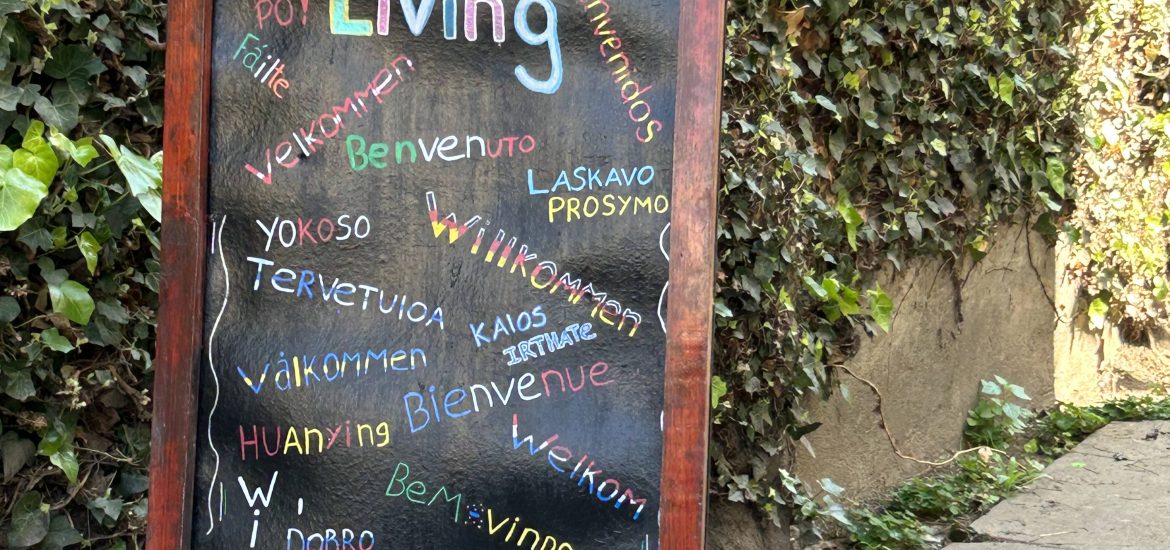 PO!
Living
nvenidos
Fáilte
velkommen
BenvenUTO
LASKAVO
PROSYMO
YOKOSO
Willkommen
TervetUlOA
KAlOS
IRTHATe
válkommen
Bienvenue
HUAnying
Welkom
BeM-vindo
W
i
DOBRO